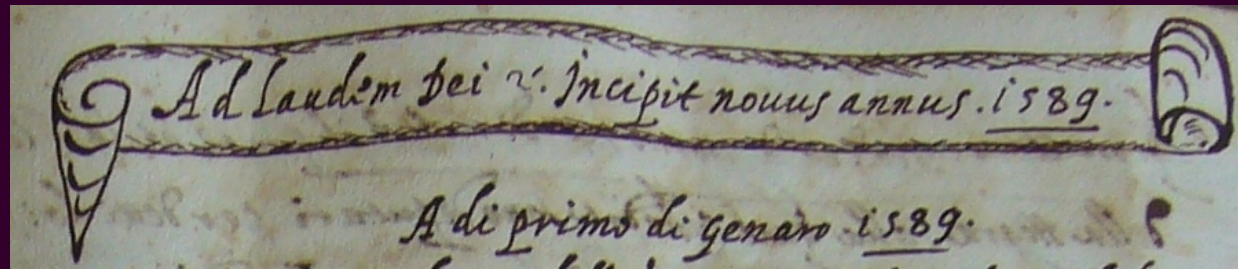 Ad laudem Dei &. Incipit nouus annus. i589.
A di primo di genaro i589.